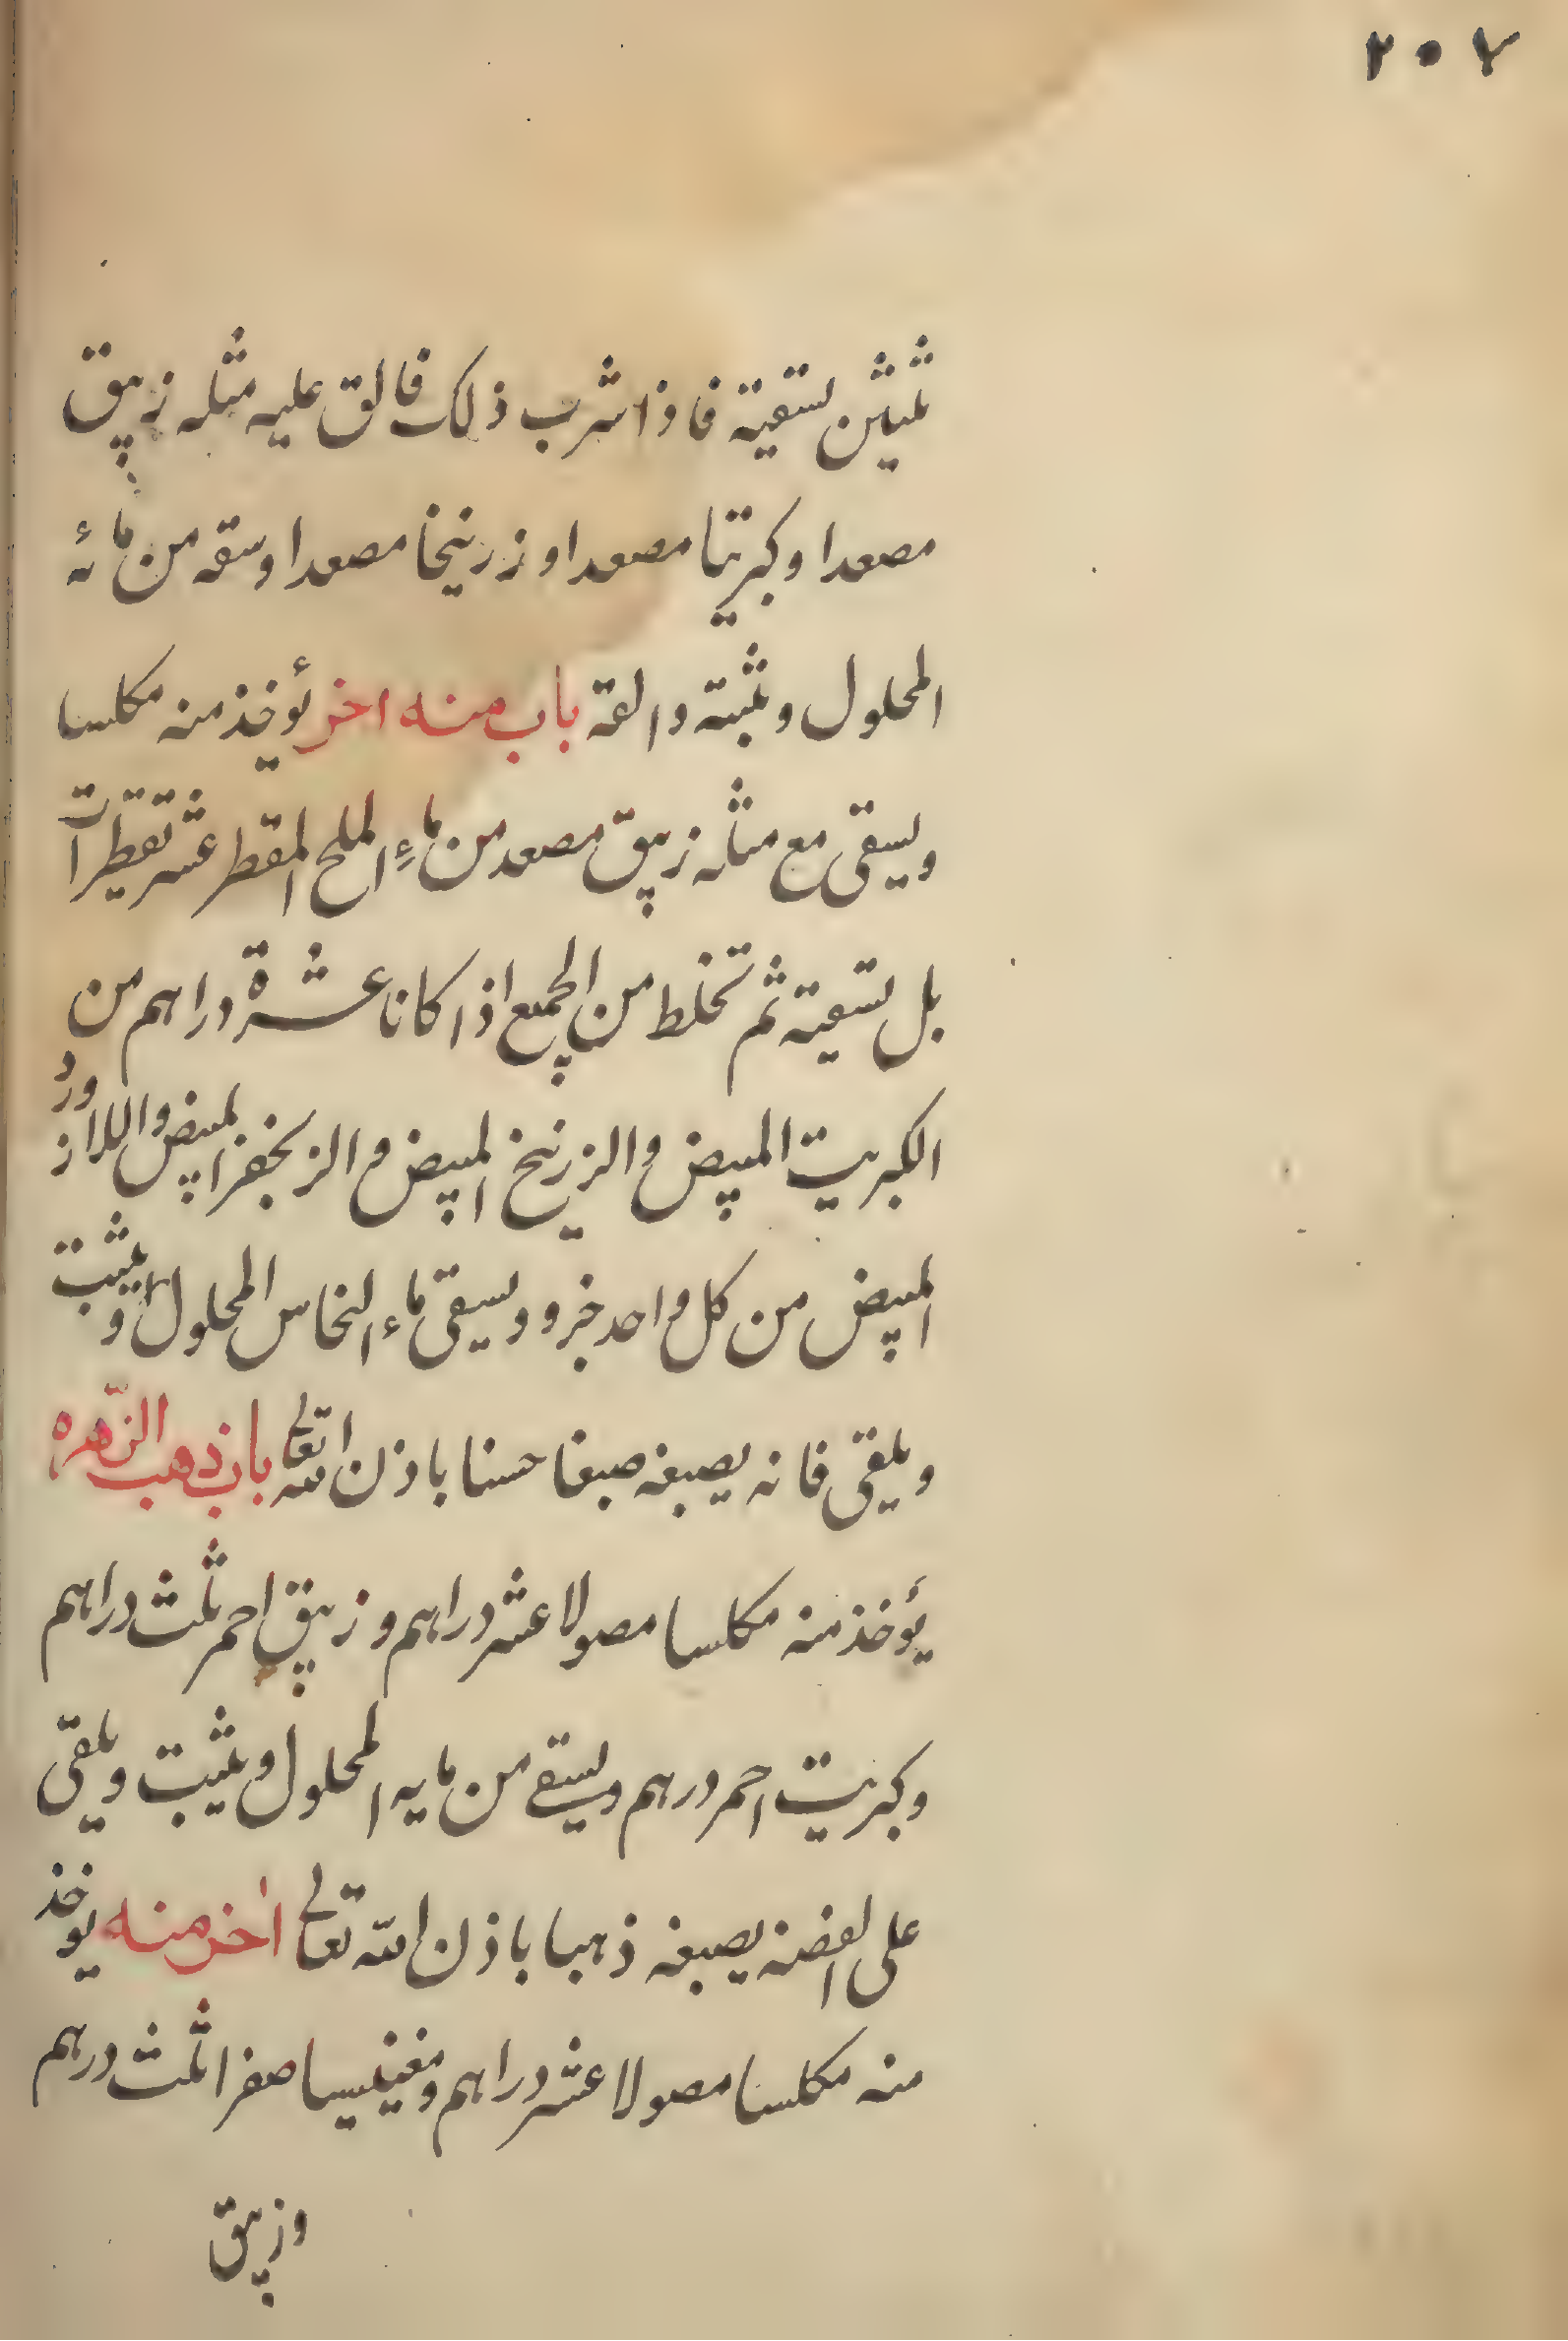 ٢٠٧
ثلثين تسقية فاذا شرب ذلك فالق عليه مثله زيبق
مصعدا وكبريتا مصعدا و زرنيخا مصعدا وسقه من مائه
المحلول و ثبته والقه باب منه اخر يؤخذ منه مكلسا
ويسقى مع مثله زيبق مصعد من ماء الملح المقطر عشر تقطيرات
بل تسقية ثم تخلط من الجميع اذا كانا عشرة دراهم من
الكبريت المبيض و الزرنيخ المبيض و الزنجفر المبيض و اللازورد
المبيض من كل واحد جزو ويسقى ماء النحاس المحلول و يثبت
ويلقى فانه يصبغه صبغا حسنا باذن الله تعالى باب ذهب الزهره
يؤخذ منه مكلسا مصولا عشر دراهم و زيبق احمر ثلث دراهم
وكبريت احمر درهم ويسقى من مايه المحلول و يثبت ويلقى
على الفضه يصبغه ذهبا باذن الله تعالى اخر منه يوخذ
منه مكلسا مصولا عشر دراهم ومغنيسيا صفرا ثلث درهم
وزيبق